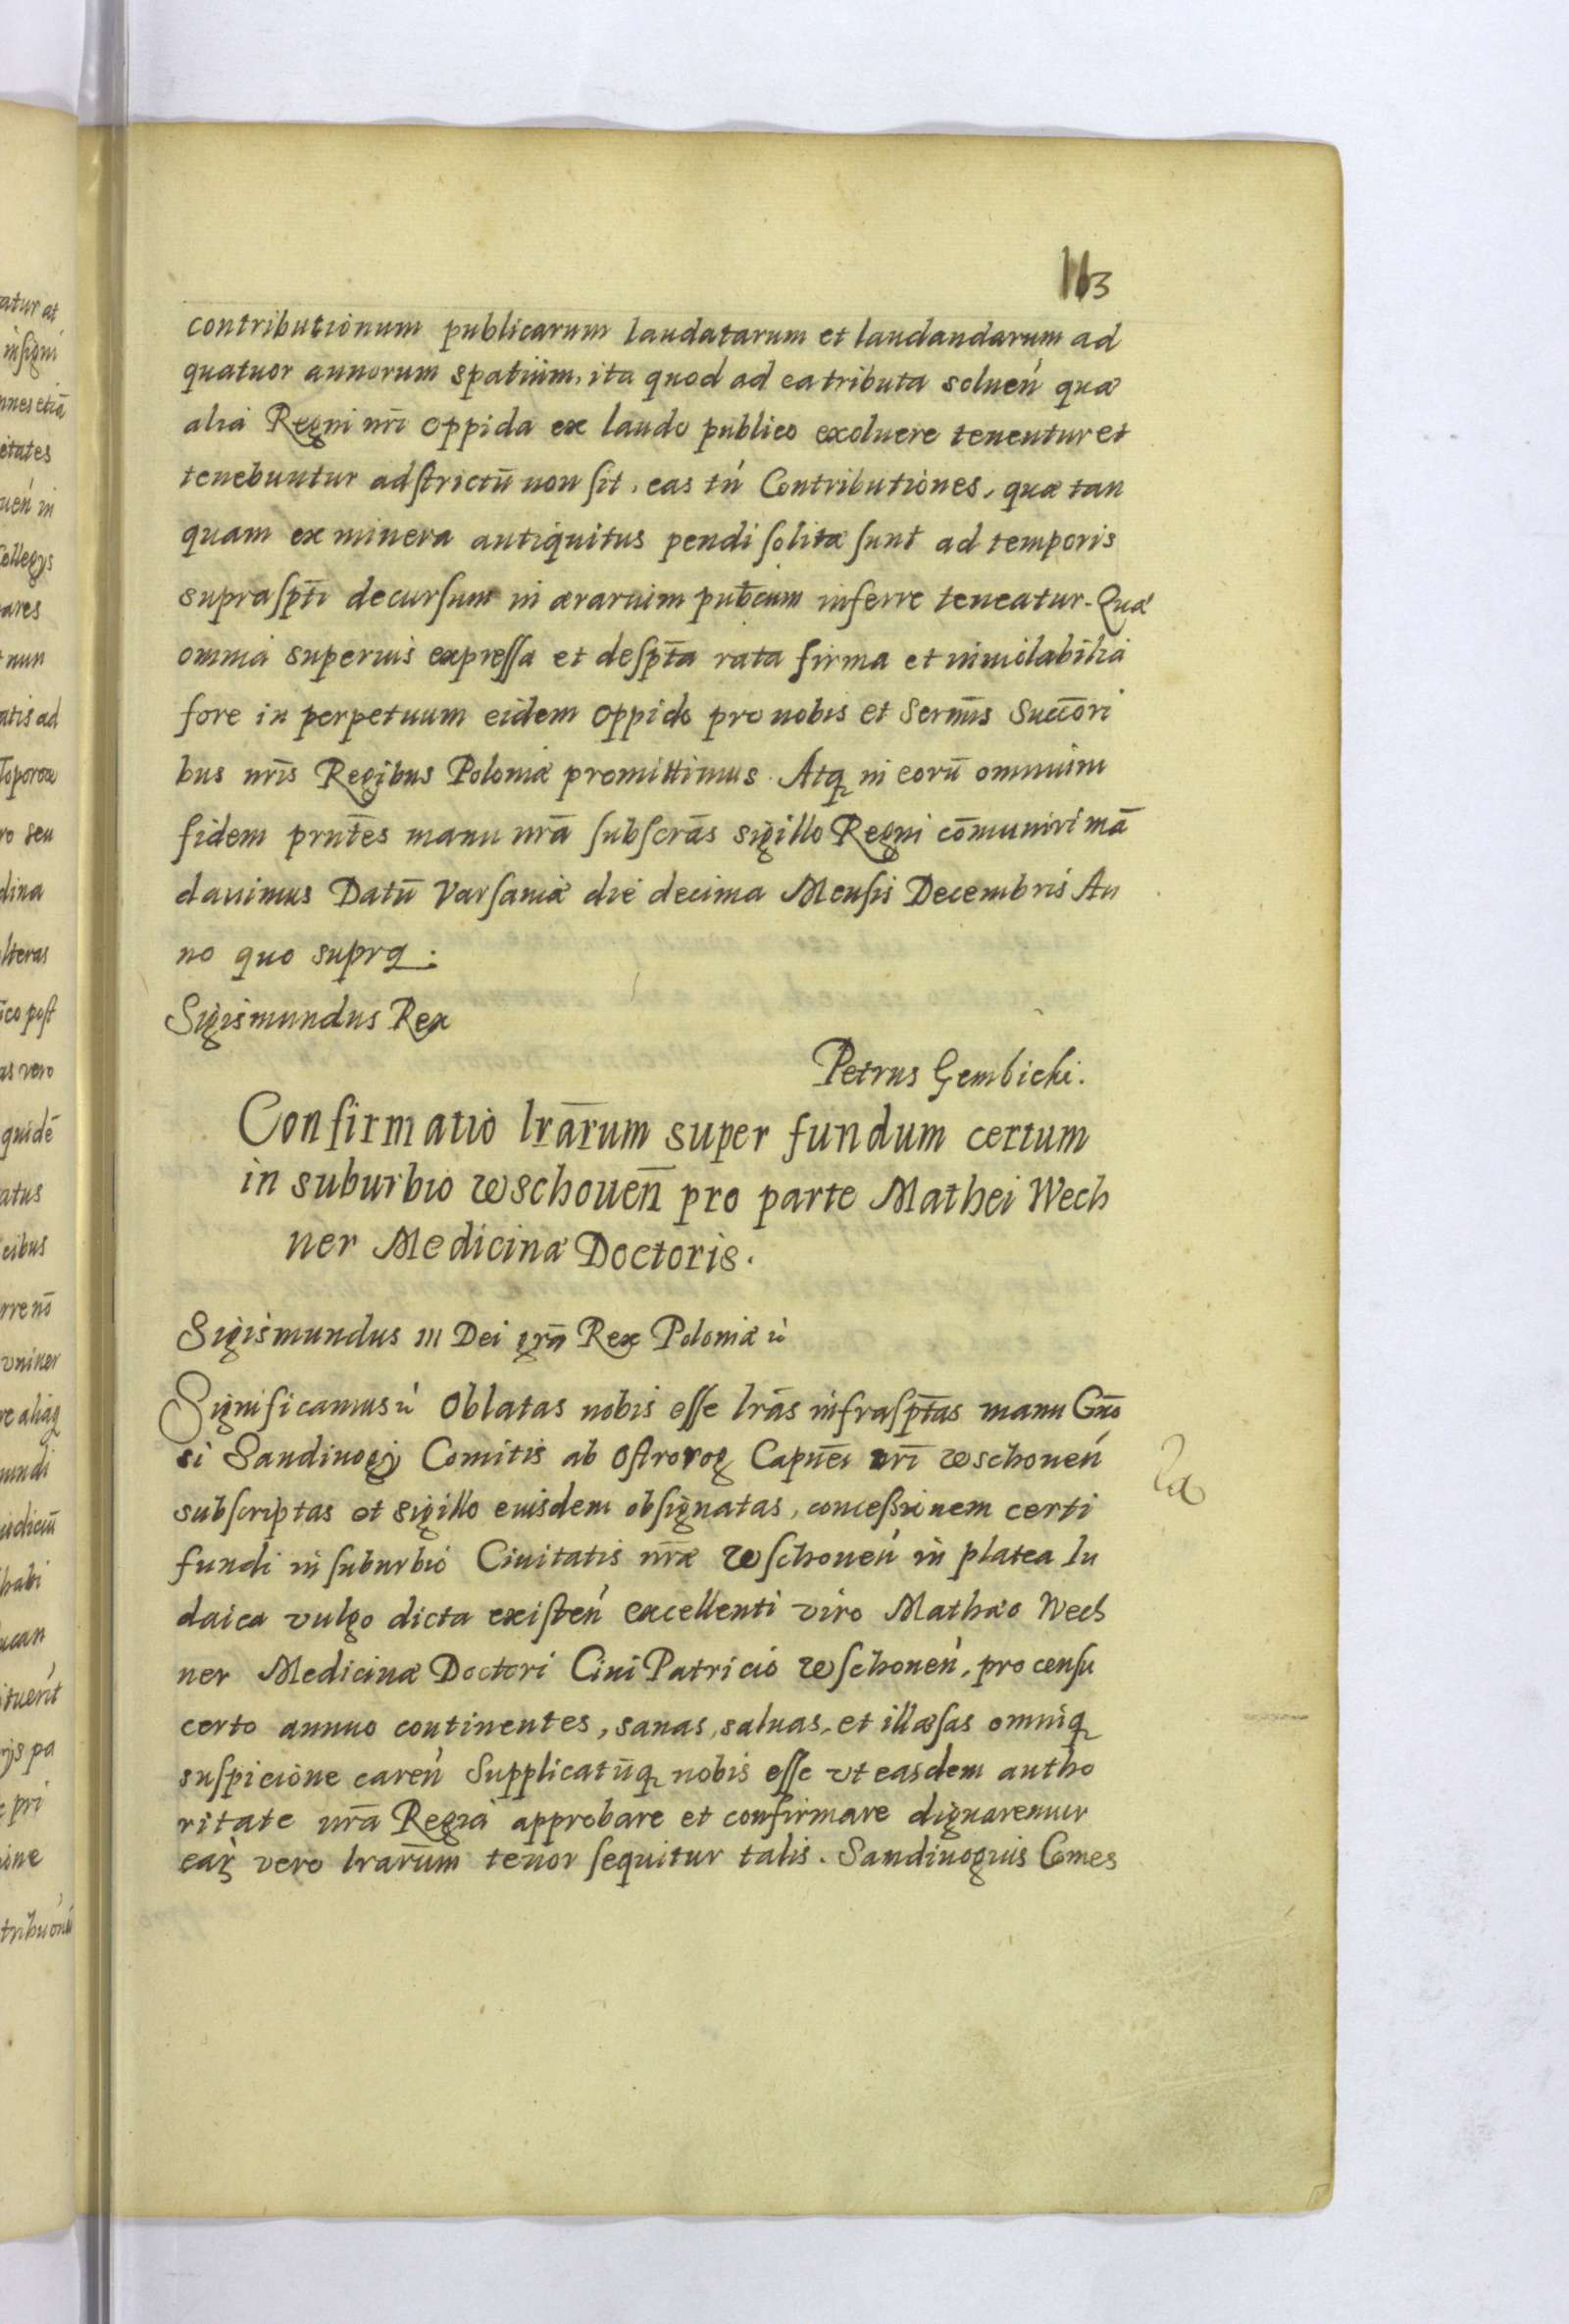 163
contributionum publicarum laudatarum et laudandarum ad
quatuor annorum spatium, ita quod ad ea tributa soluen̄ quæ
alia Regni nr̄i Oppida ex laudo publico exoluere tenentur et
tenebuntur adstrictū non sit, eas tn̄ Contributiones, quæ tan
quam ex minera antiquitus pendi solitæ sunt ad temporis
suprasp̄ti decursum in ærarium pub̄cum inferre teneatur. Quæ
omnia superius expressa et desp̄ta rata firma et inuiolabilia
fore in perpetuum eidem Oppido pro nobis et Serm̄is Succ̄ori
bus nr̄is Regibus Poloniæ promittimus. Atq́ in eorū omnium
fidem prn̄tes manu nr̄a subscr̄as sigillo Regni cōmuniri mā
dauimus Datū Varsauiæ die decima Mensis Decembris An
no quo supra.
Sigismundus Rex
Petrus Gembicki.
Confirmatio lr̄arum super fundum certum
in suburbio wschouen̄ pro parte Mathei Wech
ner Medicinæ Doctoris.
Sigismundus III Dei gr̄a Rex Poloniæ
Significamus Oblatas nobis esse lr̄as infrasp̄tas manu Gn̄o
si Sandiuogij Comitis ab Ostrorog Capn̄ei nr̄i wschouen̄
subscriptas et sigillo eiusdem obsignatas, concessionem certi
fundi in suburbio Ciuitatis nr̄æ wschouen̄ in platea Iu
daica vulgo dicta existen̄ excellenti viro Mathæo Wech
ner Medicinæ Doctori Ciui Patricio wschouen̄, pro censu
certo annuo continentes, sanas, saluas, et illæsas omniq́
suspicione caren̄ Supplicatūq́ nobis esse vt easdem autho
ritate nr̄a Regia approbare et confirmare dignaremur
earꝝ vero lr̄arum tenor sequitur talis. Sandiuogius Comes